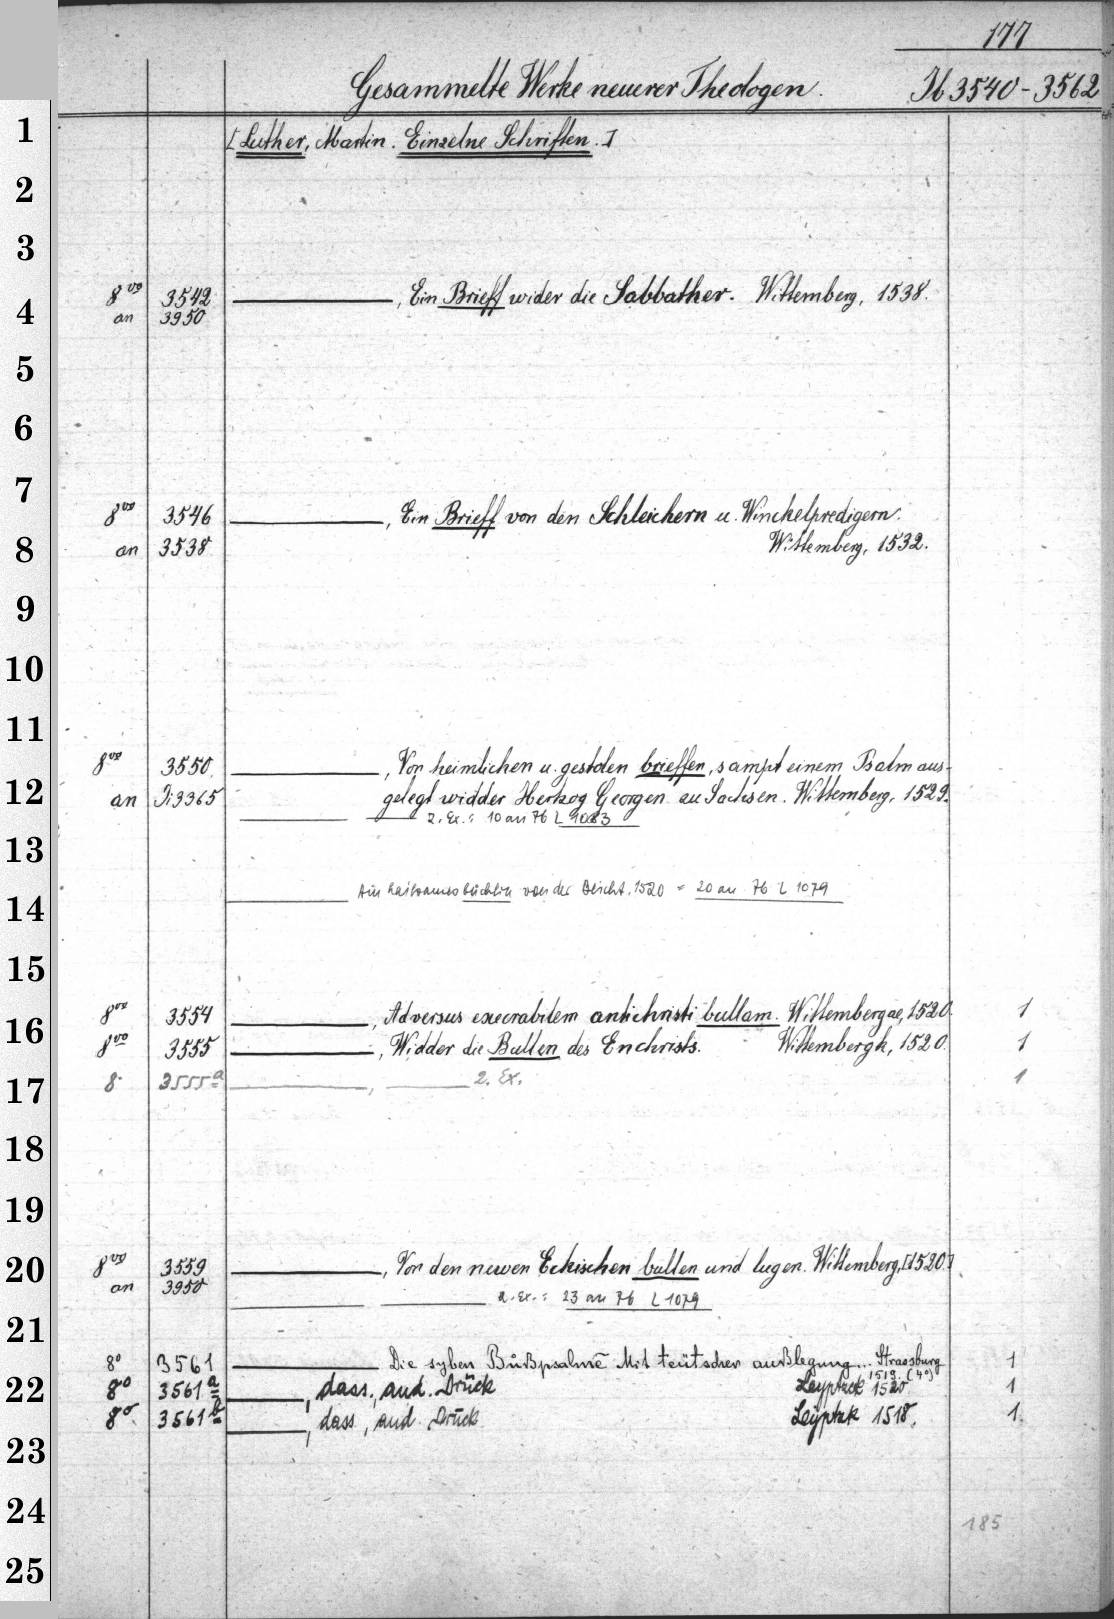 177
Gesammelte Werke neuerer Theologen. Ib 3540-3562
1
[Luther, Martin. Einzelne Schriften.]
2
3
8vo 3542 ———, Ein Brieff wider die Sabbather. Wittemberg, 1538.
4 an 3950
5
6
7
8vo 3546 ———, Ein Brieff von den Schleichern u. Winckelpredigern.
8 an 3538 Wittemberg, 1532.
9
10
11
8vo 3550 ———, Von heimlichen u. gestolen brieffen, sampt einem Psalm aus-
12 an 9365 gelegt widder Hertzog Georgen zu Sachsen. Wittemberg, 1529.
2. Ex.: 10 an 76 L 1083
13
Ain hailsames büchlin von der Beicht. 1520 = 20 an 76 L 1079
14
15
8vo 3554 ———, Adversus execrabilem antichristi bullam. Wittembergae, 1520. 1
16
8vo 3555 ———, Widder die Bullen des Endchrists. Wittembergk, 1520. 1
17 8. 3555a ———, ——— 2. Ex. 1
18
19
20 8vo 3559 ———, Von den newen Eckischen bullen und lugen. Wittemberg, [1520.]
an 3950
2. Ex.: 23 an 76 L 1079
21
8o 3561 ——— Die syben Bůßpsalmē Mit teütscher außlegung... Strassburg 1
1519. (4o)
22 8o 3561a ———, dass., and. Drück Leyptzck 1520 1
8o 3561b ———, dass., and. Drück Leyptzk 1518. 1.
23
24
185
25